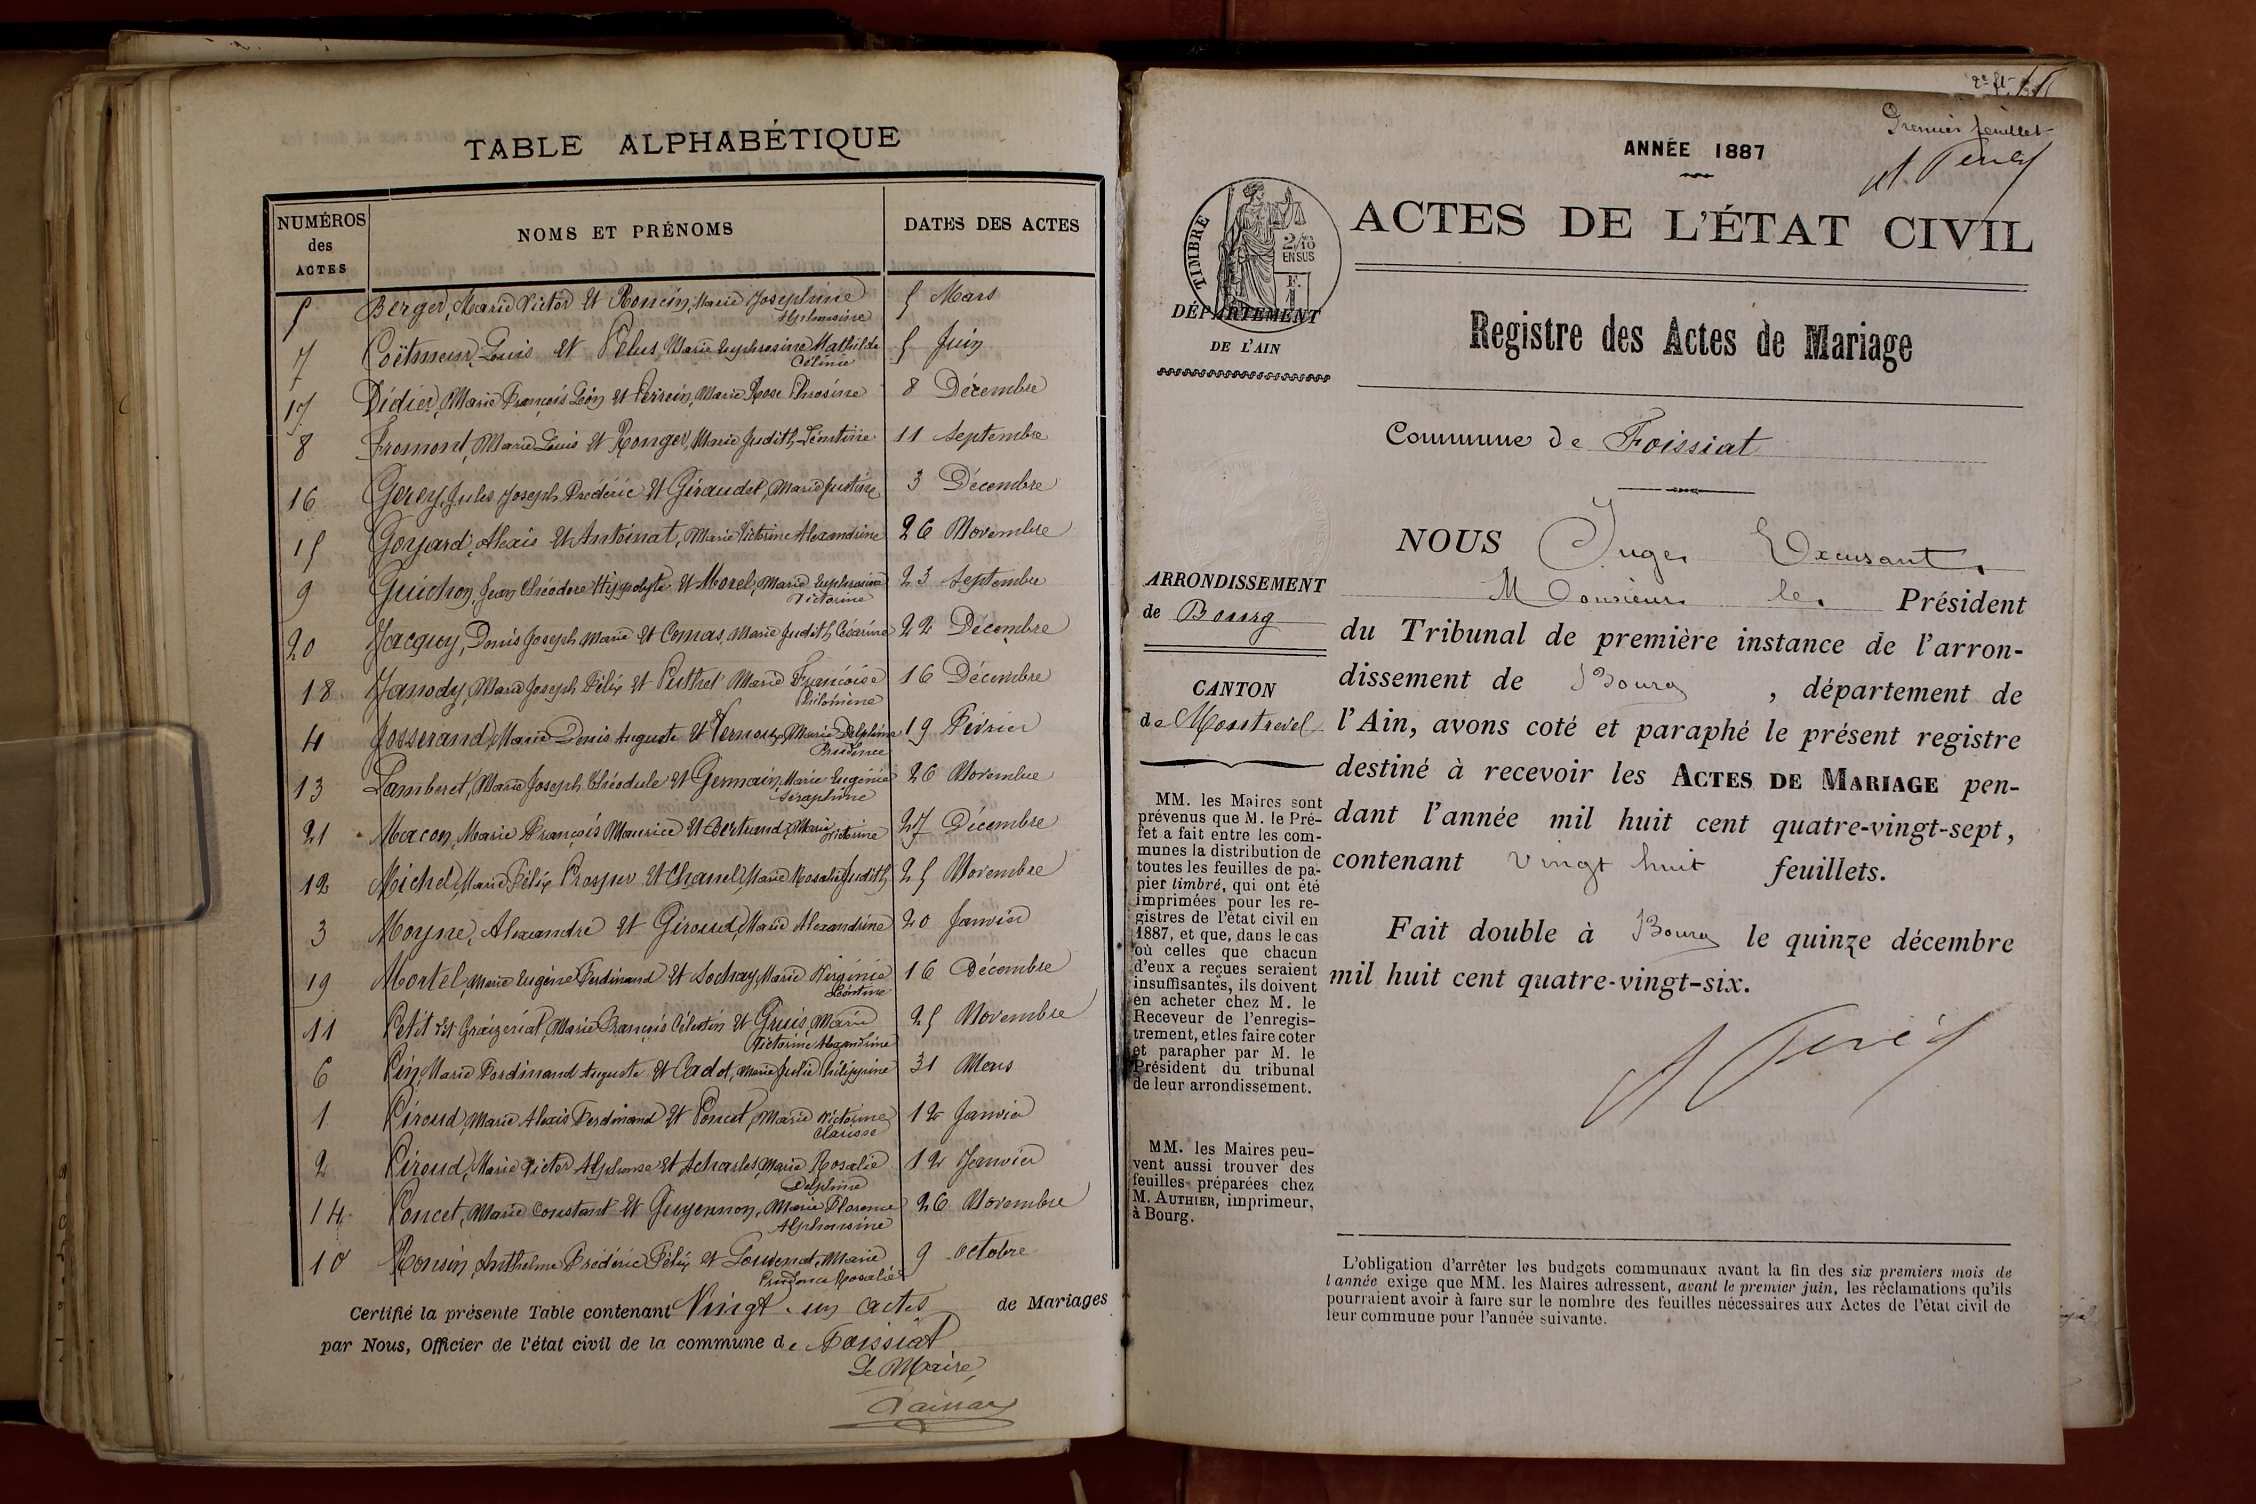 TABLE ALPHABÉTIQUE
NUMÉROS des ACTES
NOMS ET PRÉNOMS
DATES DES ACTES
5 Berger, Marie Victor et Roncin, Marie Joséphine 5 Mars
Alphonsine
7 Coëtmeur, Louis et Pelus, Marie Euphrosine Mathilde 5 Juin
Célinie
17 Didier, Marie François Léon et Perrin, Marie Rose Phrosine 8 Décembre
8 Fromont, Marie Louis et Ronger, Marie Judith Léontine 11 Septembre
16 Gerey, Jules Joseph Frédéric et Giraudet, Marie Justine 3 Décembre
15 Goyard, Alexis et Antoinat, Marie Victorine Alexandrine 26 Novembre
9 Guichon, Jean Théodore Hippolyte et Morel, Marie Euphrosine 23 Septembre
Victorine
20 Jacquoy, Denis Joseph Marie et Comas, Marie Judith Césarine 22 Décembre
18 Janody, Marie Joseph Félix et Puthet Marie Françoise 16 Décembre
Philomène
4 Josserand, Marie Denis Auguste et Vernoux, Marie Delphine 19 Février
Prudence
13 Lamberet, Marie Joseph Théodule et Germain, Marie Eugénie 26 Novembre
Séraphine
21 Macon, Marie François Maurice et Bertrand, Marie Victorine 27 Décembre
12 Michel, Marie Félix Prosper et Chanel, Marie Rosalie Judith 25 Novembre
3 Moyne, Alexandre et Giroud, Marie Alexandrine 20 Janvier
19 Mortel, Marie Eugène Ferdinand et Sochay, Marie Virginie 16 Décembre
Léontine
11 Petit dit Graizeriat, Marie François Célestin et Gruis, Marie 25 Novembre
Victorine Alexandrine
6 Pin, Marie Ferdinand Auguste et Cadot, Marie Julie Philippine 31 Mars
1 Piroud, Marie Alexis Ferdinand et Poncet, Marie Victorine 12 Janvier
Clarisse
2 Piroud, Marie Victor Alphonse et Acharles, Marie Rosalie 12 Janvier
Delphine
14 Poncet, Marie Constant et Guyennon, Marie Florence 26 Novembre
Alphonsine
10 Ronsin, Anthelme Frédéric Félix et Louvenat, Marie 9 Octobre
Prudence Rosalie
Certifié la présente Table contenant Vingt un actes de Mariages
par Nous, Officier de l'état civil de la commune de Foissiat
Le Maire,
Premier feuillet
ANNÉE 1887
TIMBRE
2/10
EN SUS
ACTES DE L'ÉTAT CIVIL
DÉPARTEMENT
DE L'AIN
Registre des Actes de Mariage
Commune de Foissiat
ARRONDISSEMENT
de Bourg
CANTON
de Montrevel
MM. les Maires sont
prévenus que M. le Pré-
fet a fait entre les com-
munes la distribution de
toutes les feuilles de pa-
pier timbré, qui ont été
imprimées pour les re-
gistres de l'état civil en
1887, et que, dans le cas
où celles que chacun
d'eux a reçues seraient
insuffisantes, ils doivent
en acheter chez M. le
Receveur de l'enregis-
trement, et les faire coter
et parapher par M. le
Président du tribunal
de leur arrondissement.
MM. les Maires peu-
vent aussi trouver des
feuilles préparées chez
M. AUTHIER, imprimeur,
à Bourg.
NOUS Juge Excusant
Monsieur le Président
du Tribunal de première instance de l'arron-
dissement de Bourg, département de
l'Ain, avons coté et paraphé le présent registre
destiné à recevoir les ACTES DE MARIAGE pen-
dant l'année mil huit cent quatre-vingt-sept,
contenant vingt huit feuillets.
Fait double à Bourg le quinze décembre
mil huit cent quatre-vingt-six.
L'obligation d'arrêter les budgets communaux avant la fin des six premiers mois de
l'année exige que MM. les Maires adressent, avant le premier juin, les réclamations qu'ils
pourraient avoir à faire sur le nombre des feuilles nécessaires aux Actes de l'état civil de
leur commune pour l'année suivante.